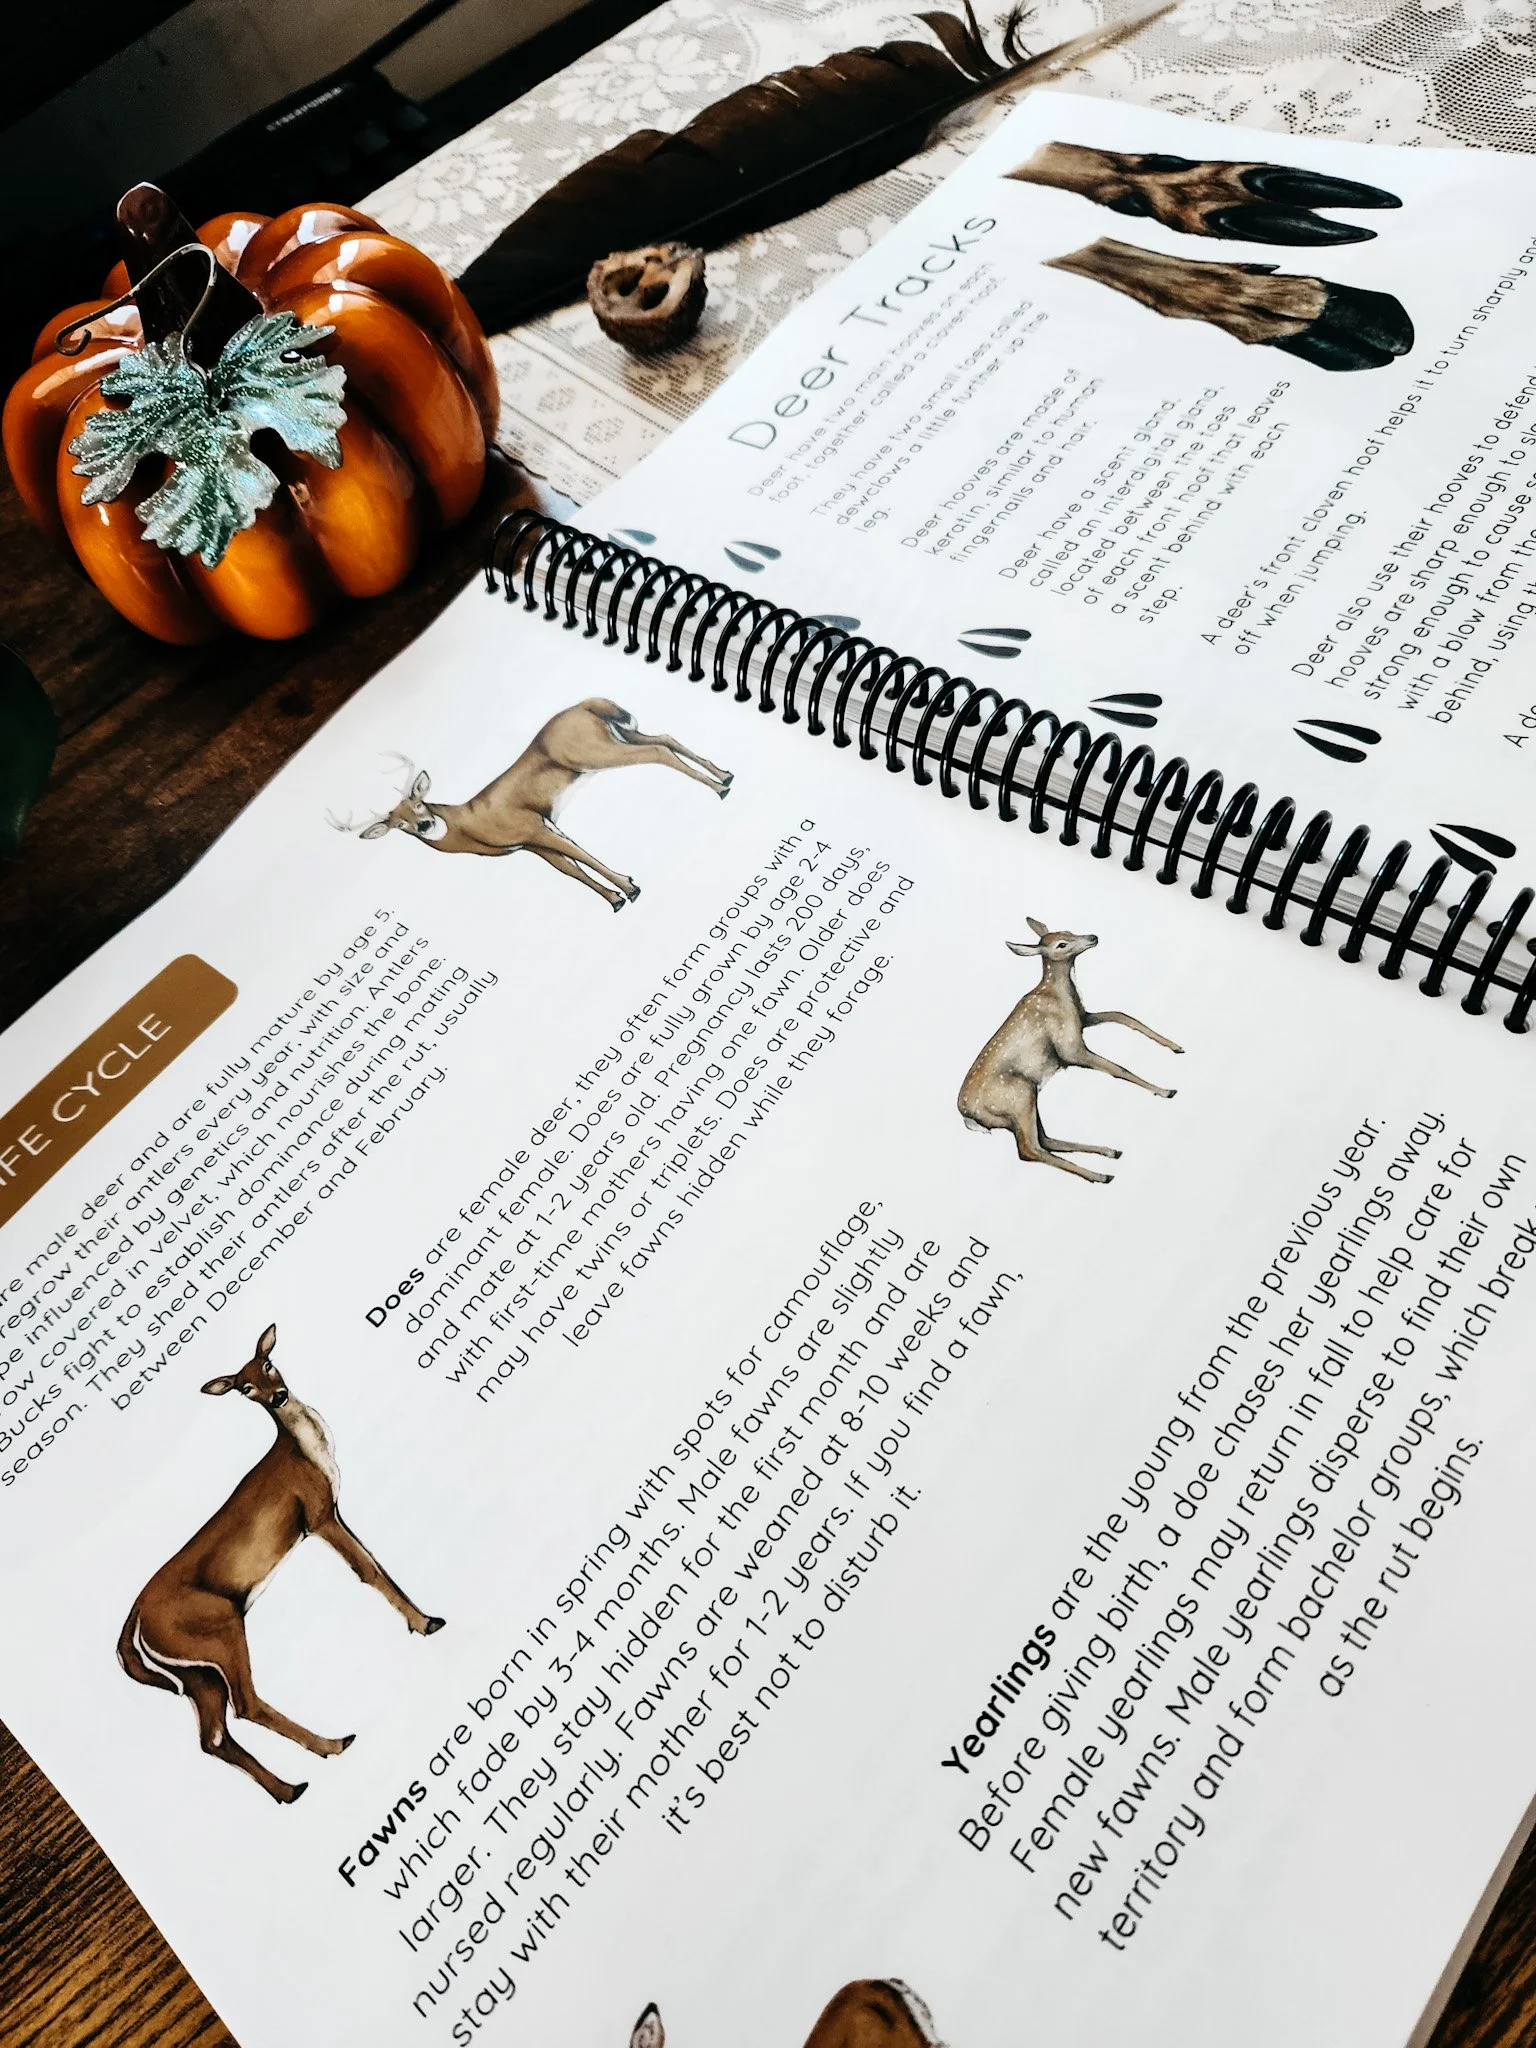 IFE CYCLE
are male deer and are fully mature by age 5.
regrow their antlers every year, with size and
pe influenced by genetics and nutrition. Antlers
ow covered in velvet, which nourishes the bone.
Bucks fight to establish dominance during mating
season. They shed their antlers after the rut, usually
between December and February.
Does are female deer, they often form groups with a
dominant female. Does are fully grown by age 2-4
and mate at 1-2 years old. Pregnancy lasts 200 days,
with first-time mothers having one fawn. Older does
may have twins or triplets. Does are protective and
leave fawns hidden while they forage.
Fawns are born in spring with spots for camouflage,
which fade by 3-4 months. Male fawns are slightly
larger. They stay hidden for the first month and are
nursed regularly. Fawns are weaned at 8-10 weeks and
stay with their mother for 1-2 years. If you find a fawn,
it's best not to disturb it.
Yearlings are the young from the previous year.
Before giving birth, a doe chases her yearlings away.
Female yearlings may return in fall to help care for
new fawns. Male yearlings disperse to find their own
territory and form bachelor groups, which break
as the rut begins.
Deer Tracks
Deer have two main hooves on each
foot, together called a cloven hoof.
They have two small toes called
dewclaws a little further up the
leg.
Deer hooves are made of
keratin, similar to human
fingernails and hair.
Deer have a scent gland,
called an interdigital gland,
located between the toes
of each front hoof that leaves
a scent behind with each
step.
A deer's front cloven hoof helps it to turn sharply and
off when jumping.
Deer also use their hooves to defend
hooves are sharp enough to
strong enough to cause
with a blow from the
behind, using
A